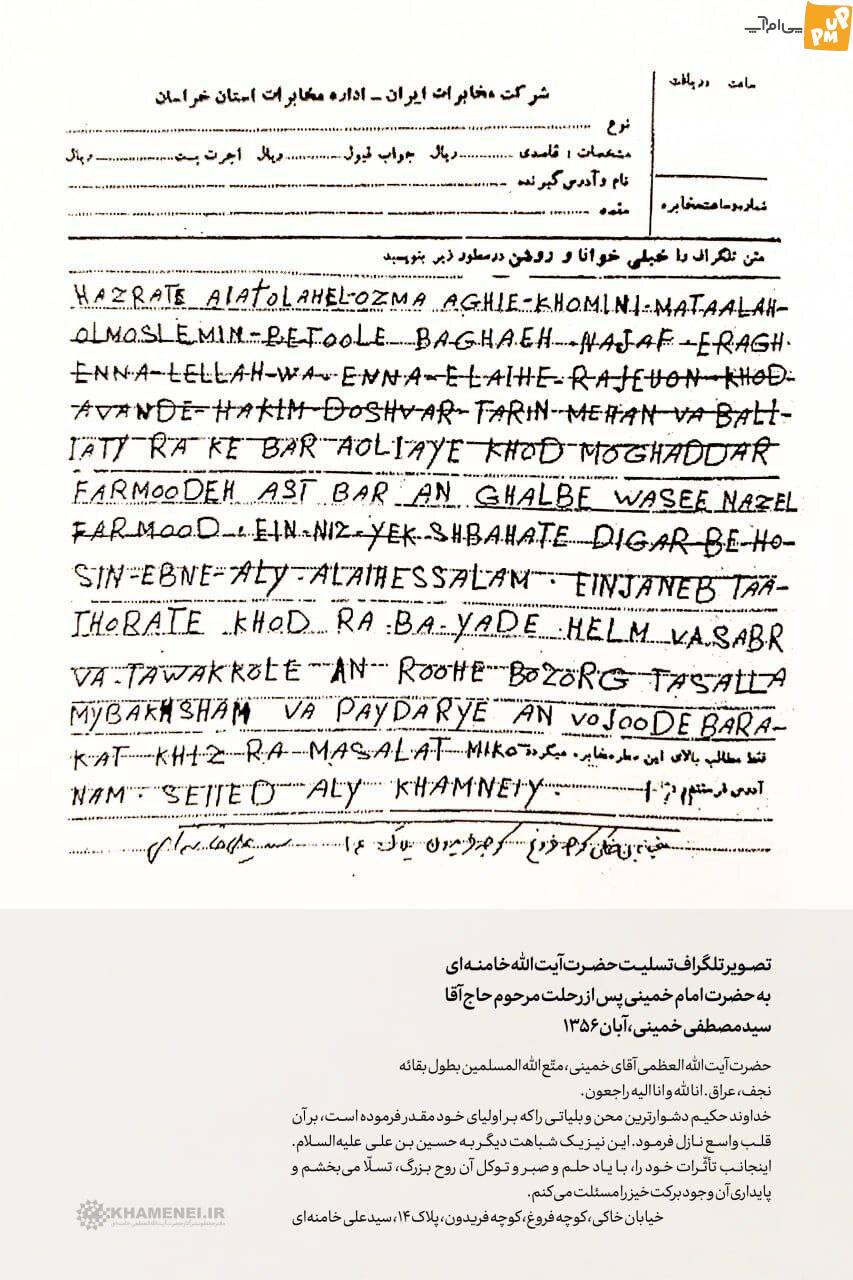 پی‌ام‌آپ
PM UP
ساعت دریافت
شرکت مخابرات ایران - اداره مخابرات استان خراسان
نوع
مشخصات : قاصدی ریال جواب قبول ریال اجرت پست ریال
نام و آدرس گیرنده
مقصد
شماره و ساعت مخابره
متن تلگراف را خیلی خوانا و روشن در سطور زیر بنویسید
HAZRATE AIATOLAHEL-OZMA AGHIE-KHOMINI-MATAALAH-
OLMOSLEMIN-BETOOLE BAGHAEH-NAJAF-ERAGH.
ENNA-LELLAH-WA-ENNA-ELAIHE-RAJEUON-KHOD-
AVANDE-HAKIM-DOSHVAR-TARIN-MEHAN VA BALI-
IATY RA KE BAR AOLIAYE KHOD MOGHADDAR
FARMOODEH AST BAR AN GHALBE WASEE NAZEL
FARMOOD. EIN-NIZ-YEK SHBAHATE DIGAR-BE-HO-
SIN-EBNE-ALY-ALAIHESSALAM. EINJANEB TAA-
THORATE KHOD RA BA-YADE HELM VA SABR
VA-TAWAKKOLE AN ROOHE BOZORG TASALLA
MYBAKHSHAM VA PAYDARYE AN VOJOODE BARA-
KAT KHIZ RA MASALAT MIKO فقط مطالب بالای این سطر مخابره میگردد
NAM. SEIIED ALY KHAMNEIY. آدرس فرستنده
تصویر تلگراف تسلیت حضرت آیت‌الله خامنه‌ای
به حضرت امام خمینی پس از رحلت مرحوم حاج آقا
سید مصطفی خمینی، آبان ۱۳۵۶
حضرت آیت‌الله العظمی آقای خمینی، متّع الله المسلمین بطول بقائه
نجف، عراق. انا لله وانا الیه راجعون.
خداوند حکیم دشوارترین محن و بلیاتی را که بر اولیای خود مقدر فرموده است، بر آن
قلب واسع نازل فرمود. این نیز یک شباهت دیگر به حسین بن علی علیه‌السلام.
اینجانب تأثّرات خود را، با یاد حلم و صبر و توکل آن روح بزرگ، تسلّا می‌بخشم و
پایداری آن وجود برکت خیز را مسئلت می‌کنم.
خیابان خاکی، کوچه فروغ، کوچه فریدون، پلاک ۱۴، سیدعلی خامنه‌ای
KHAMENEI.IR